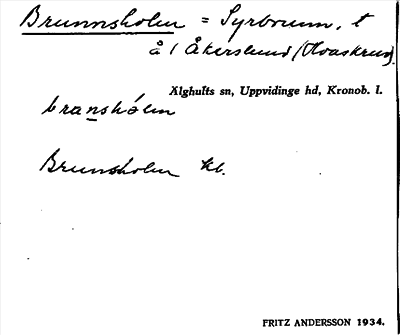 Brunnsholm = Syrbrunn, t
å i Åkerslund (Hvaskrus).
Älghults sn, Uppvidinge hd, Kronob. l.
branshólm
Brunsholm kl.
FRITZ ANDERSSON 1934.